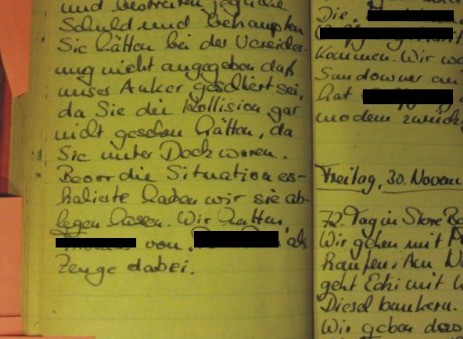 und bestreiten jegliche
Schuld und behaupten
Sie hätten bei der Vereide-
ung nicht angegeben daß
unser Anker geschliert sei,
da Sie die Kollision gar
nicht gesehen hätten, da
Sie unter Deck waren.
Bevor die Situation es-
kalierte haben wir sie ab-
legen lassen. Wir hatten
von als
Zeuge dabei.
Die
kommen. Wir
Sundowner an
hat
modem zurück
Freitag, 30. Novem
72. Tag in Store Ba
Wir gehen mit
kaufen. Am
geht Edi mit
Diesel bunkern.
Wir geben das